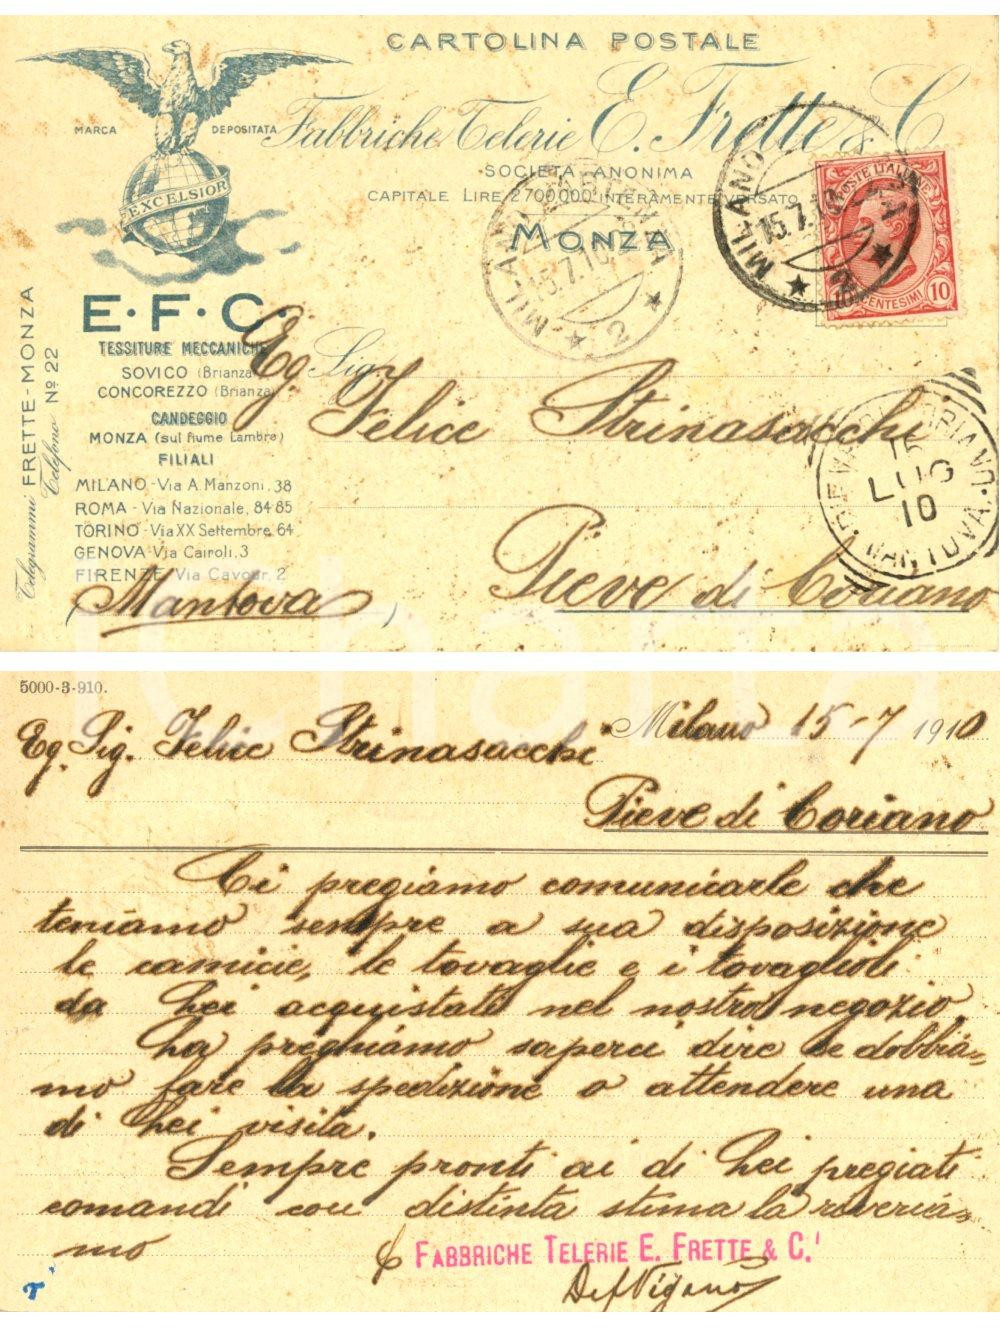 CARTOLINA POSTALE
MARCA DEPOSITATA
Fabbriche Telerie E. Frette & C.
SOCIETÀ ANONIMA
CAPITALE LIRE 2700000 INTERAMENTE VERSATO
MONZA
EXCELSIOR
E.F.C.
TESSITURE MECCANICHE
SOVICO (Brianza)
CONCOREZZO (Brianza)
CANDEGGIO
MONZA (sul fiume Lambro)
FILIALI
MILANO - Via A. Manzoni, 38
ROMA - Via Nazionale, 84-85
TORINO - Via XX Settembre, 64
GENOVA Via Cairoli, 3
FIRENZE Via Cavour, 2
Telegrammi FRETTE-MONZA
Telefono Nº 22
MILANO
15.7.10
2
MILANO
15.7.10
POSTE ITALIANE
CENTESIMI 10
PIEVE DI CORIANO
LUG
10
MANTOVA
Eg. Sig.
Felice Strinasacchi
Pieve di Coriano
(Mantova)
iCharta
5000-3-910.
Milano 15-7 1910
Eg. Sig. Felice Strinasacchi
Pieve di Coriano
Ci pregiamo comunicarle che
teniamo sempre a sua disposizione
le camicie, le tovaglie e i tovaglioli
da Lei acquistati nel nostro negozio.
La preghiamo saperci dire se dobbia=
mo fare la spedizione o attendere una
di Lei visita.
Sempre pronti ai di Lei pregiati
comandi con distinta stima la riveria=
mo
FABBRICHE TELERIE E. FRETTE & C.